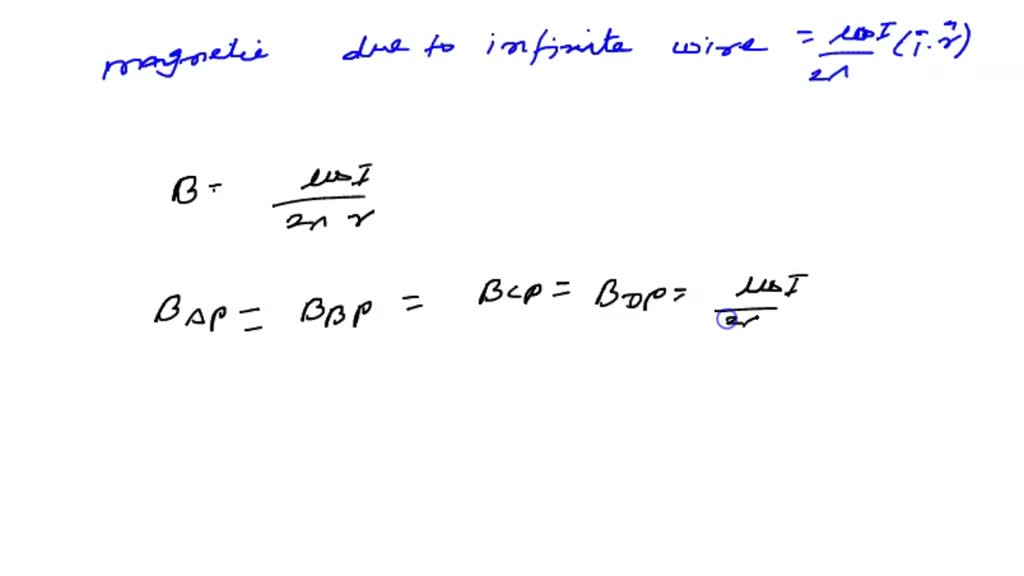 magnetic due to infinite wire = μ₀I/2π (i⃗·r⃗)
B = μ₀I/2π r
B_AP = B_BP = B_CP = B_DP = μ₀I/2r